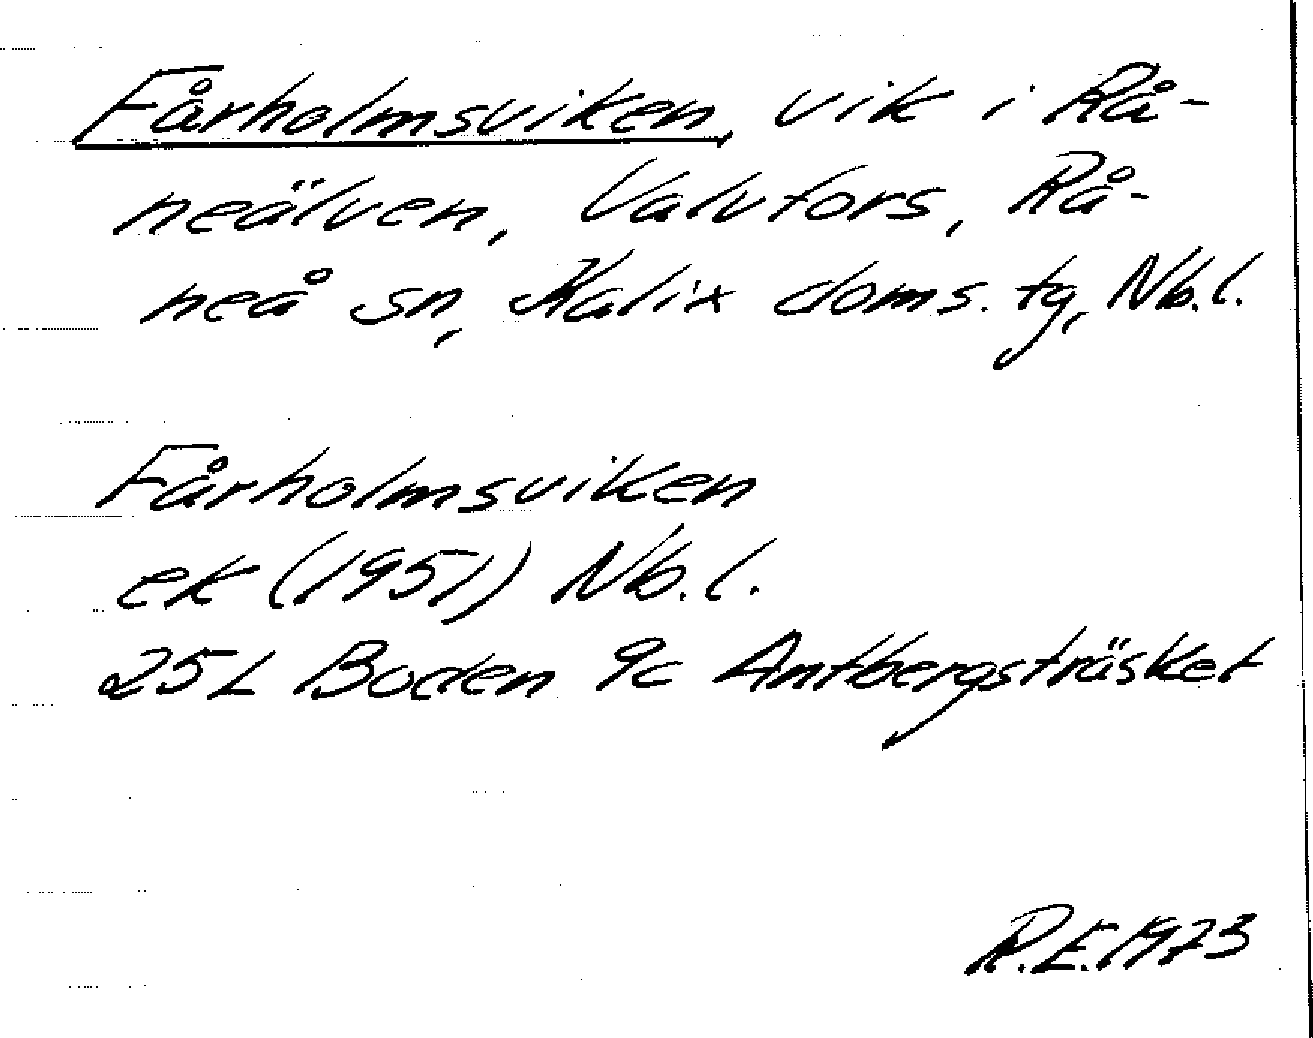 Fårholmsviken, vik i Rå-
neälven, Valvfors, Rå-
neå sn, Kalix doms. tg, Nb.l.
Fårholmsviken
ek (1951) Nb.l.
25L Boden 9c Antbergsträsket
R.E. 1973